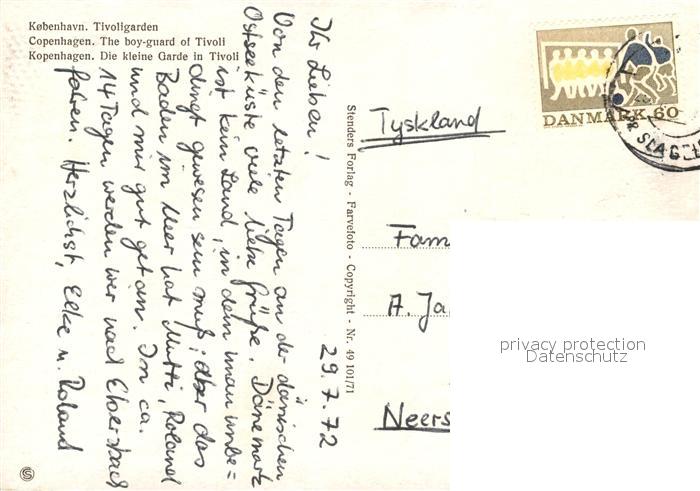 København. Tivoligarden
Copenhagen. The boy-guard of Tivoli
Kopenhagen. Die kleine Garde in Tivoli
29.7.72
Ihr Lieben!
Von den letzten Tagen an der dänischen
Ostseeküste viele liebe Grüße. Dänemark
ist kein Land, in dem man unbe=
dingt gewesen sein muß; aber das
Baden im Meer hat Mutti, Roland
und mir gut getan. In ca.
14 Tagen werden wir nach Eberbach
fahren. Herzlichst, Elke u. Roland
Stenders Forlag - Farvefoto - Copyright - Nr. 49 101/71
DANMARK 60
SLAGEL
Tyskland
Fam
A. Ja
Neers
privacy protection
Datenschutz